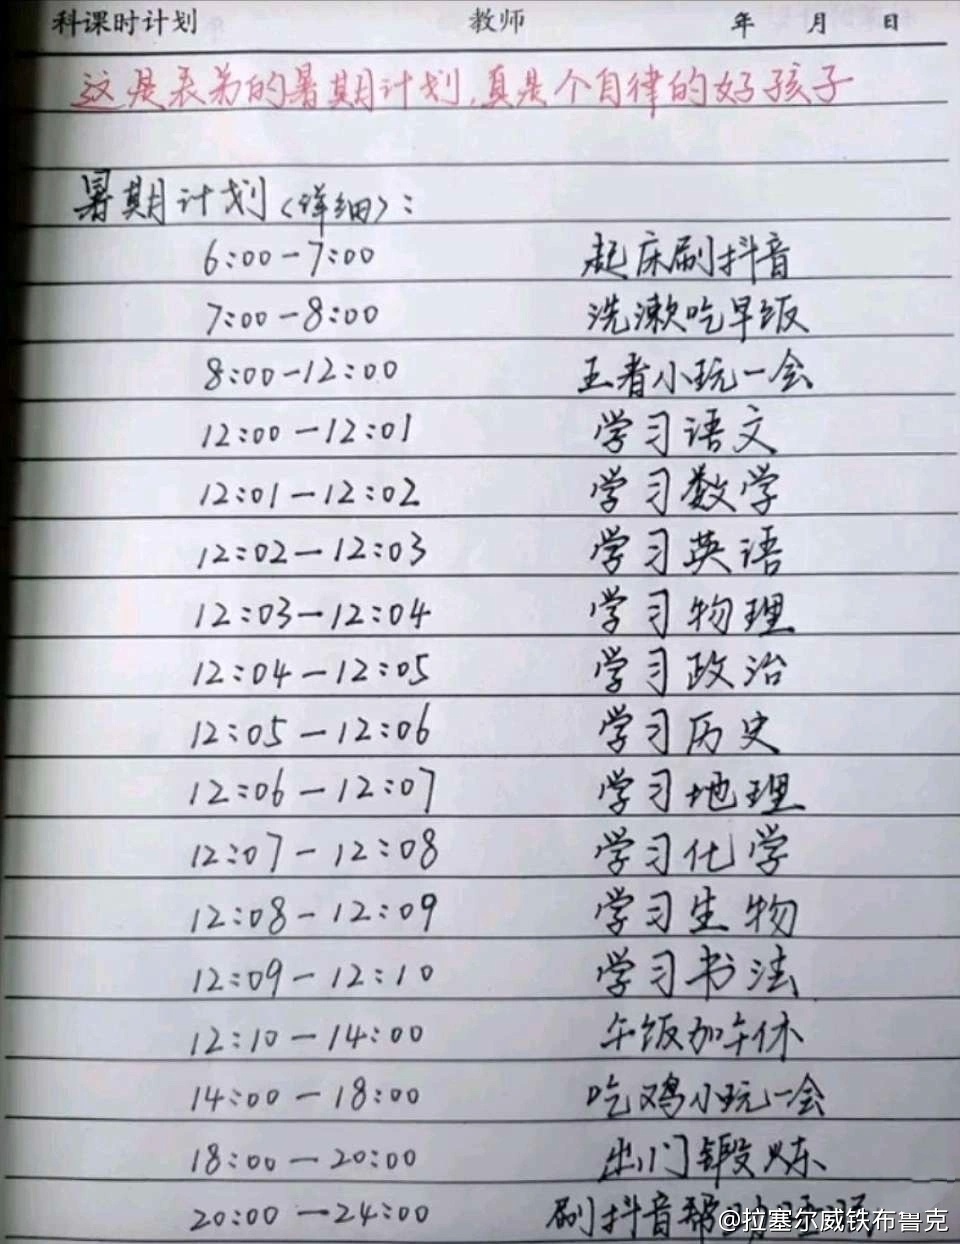 科课时计划 教师 年 月 日
这是表弟的暑期计划,真是个自律的好孩子
暑期计划(详细):
6:00-7:00 起床刷抖音
7:00-8:00 洗漱吃早饭
8:00-12:00 王者小玩一会
12:00-12:01 学习语文
12:01-12:02 学习数学
12:02-12:03 学习英语
12:03-12:04 学习物理
12:04-12:05 学习政治
12:05-12:06 学习历史
12:06-12:07 学习地理
12:07-12:08 学习化学
12:08-12:09 学习生物
12:09-12:10 学习书法
12:10-14:00 午饭加午休
14:00-18:00 吃鸡小玩一会
18:00-20:00 出门锻炼
20:00-24:00 刷抖音帮
@拉塞尔威铁布鲁克